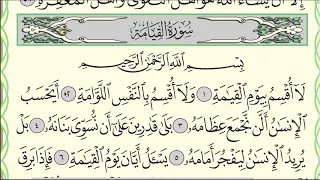 إِلَّا أَن يَشَاءَ اللَّهُ هُوَ أَهْلُ التَّقْوَىٰ وَأَهْلُ الْمَغْفِرَةِ
سُورَةُ القِيَامَةِ
بِسْمِ اللَّهِ الرَّحْمَٰنِ الرَّحِيمِ
لَا أُقْسِمُ بِيَوْمِ الْقِيَامَةِ ١ وَلَا أُقْسِمُ بِالنَّفْسِ اللَّوَّامَةِ ٢ أَيَحْسَبُ
الْإِنسَانُ أَلَّن نَّجْمَعَ عِظَامَهُ ٣ بَلَىٰ قَادِرِينَ عَلَىٰ أَن نُّسَوِّيَ بَنَانَهُ ٤ بَلْ
يُرِيدُ الْإِنسَانُ لِيَفْجُرَ أَمَامَهُ ٥ يَسْأَلُ أَيَّانَ يَوْمُ الْقِيَامَةِ ٦ فَإِذَا بَرِقَ